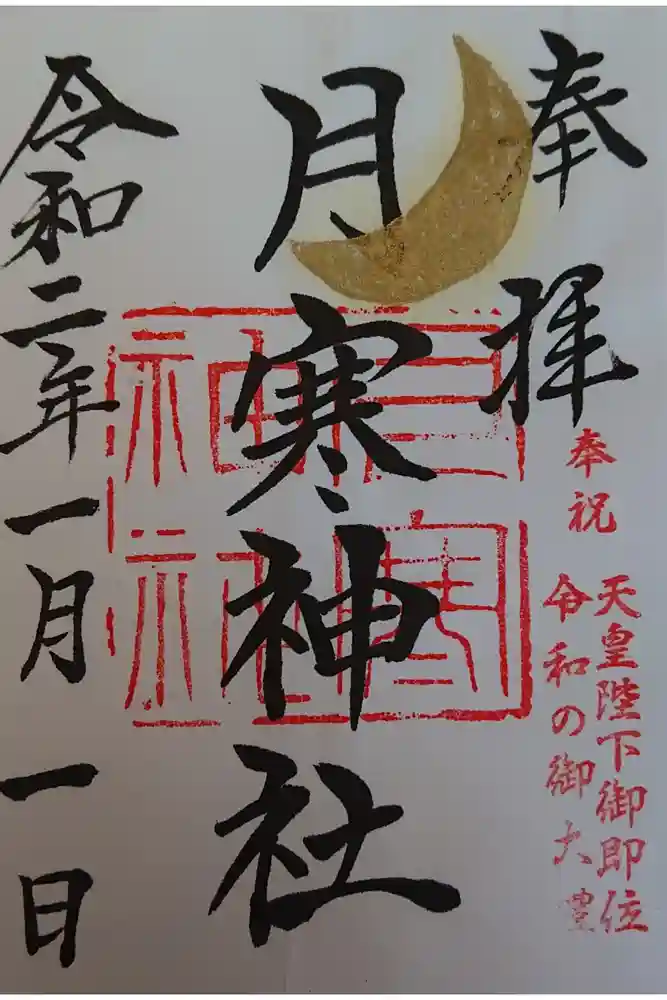 奉拝
奉祝
天皇陛下御即位
令和の御大豊
月寒神社
月寒神社
令和二年一月一日